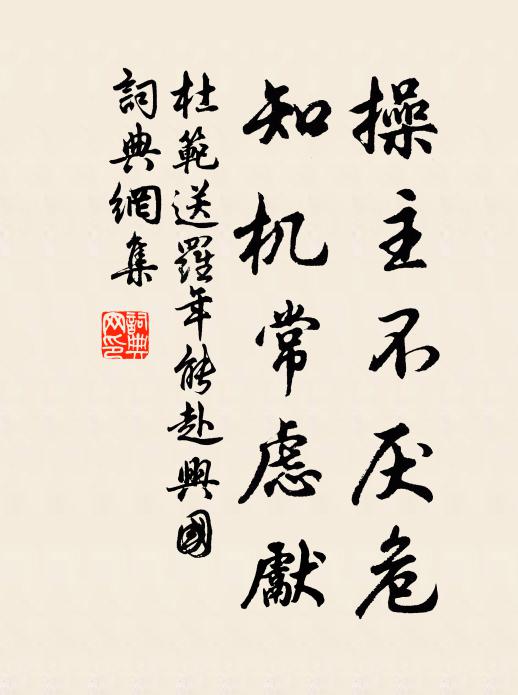 操主不厌危
知机常虑獻
杜範送羅年能赴興國
詞典網集
詞典网印